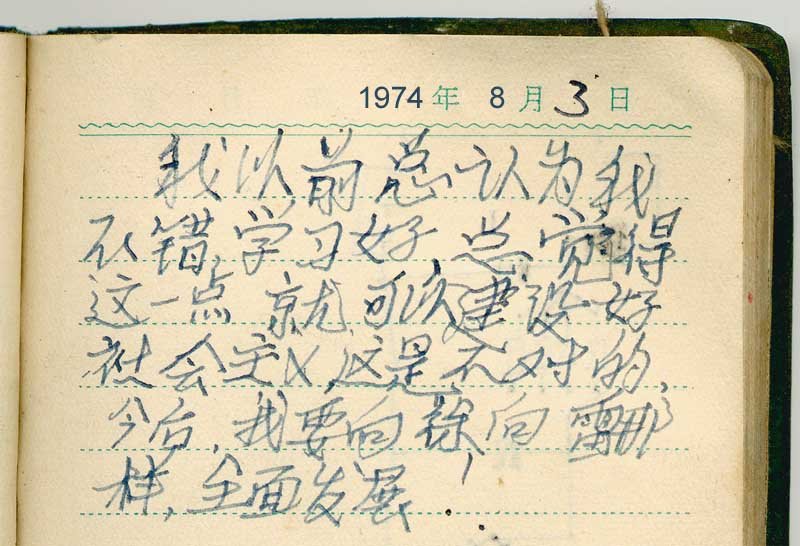 1974年 8月3日
我以前总认为我
不错,学习好,总觉得
这一点就可以建设好
社会主义,这是不对的,
今后,我要向徐向雷那
样,全面发展!